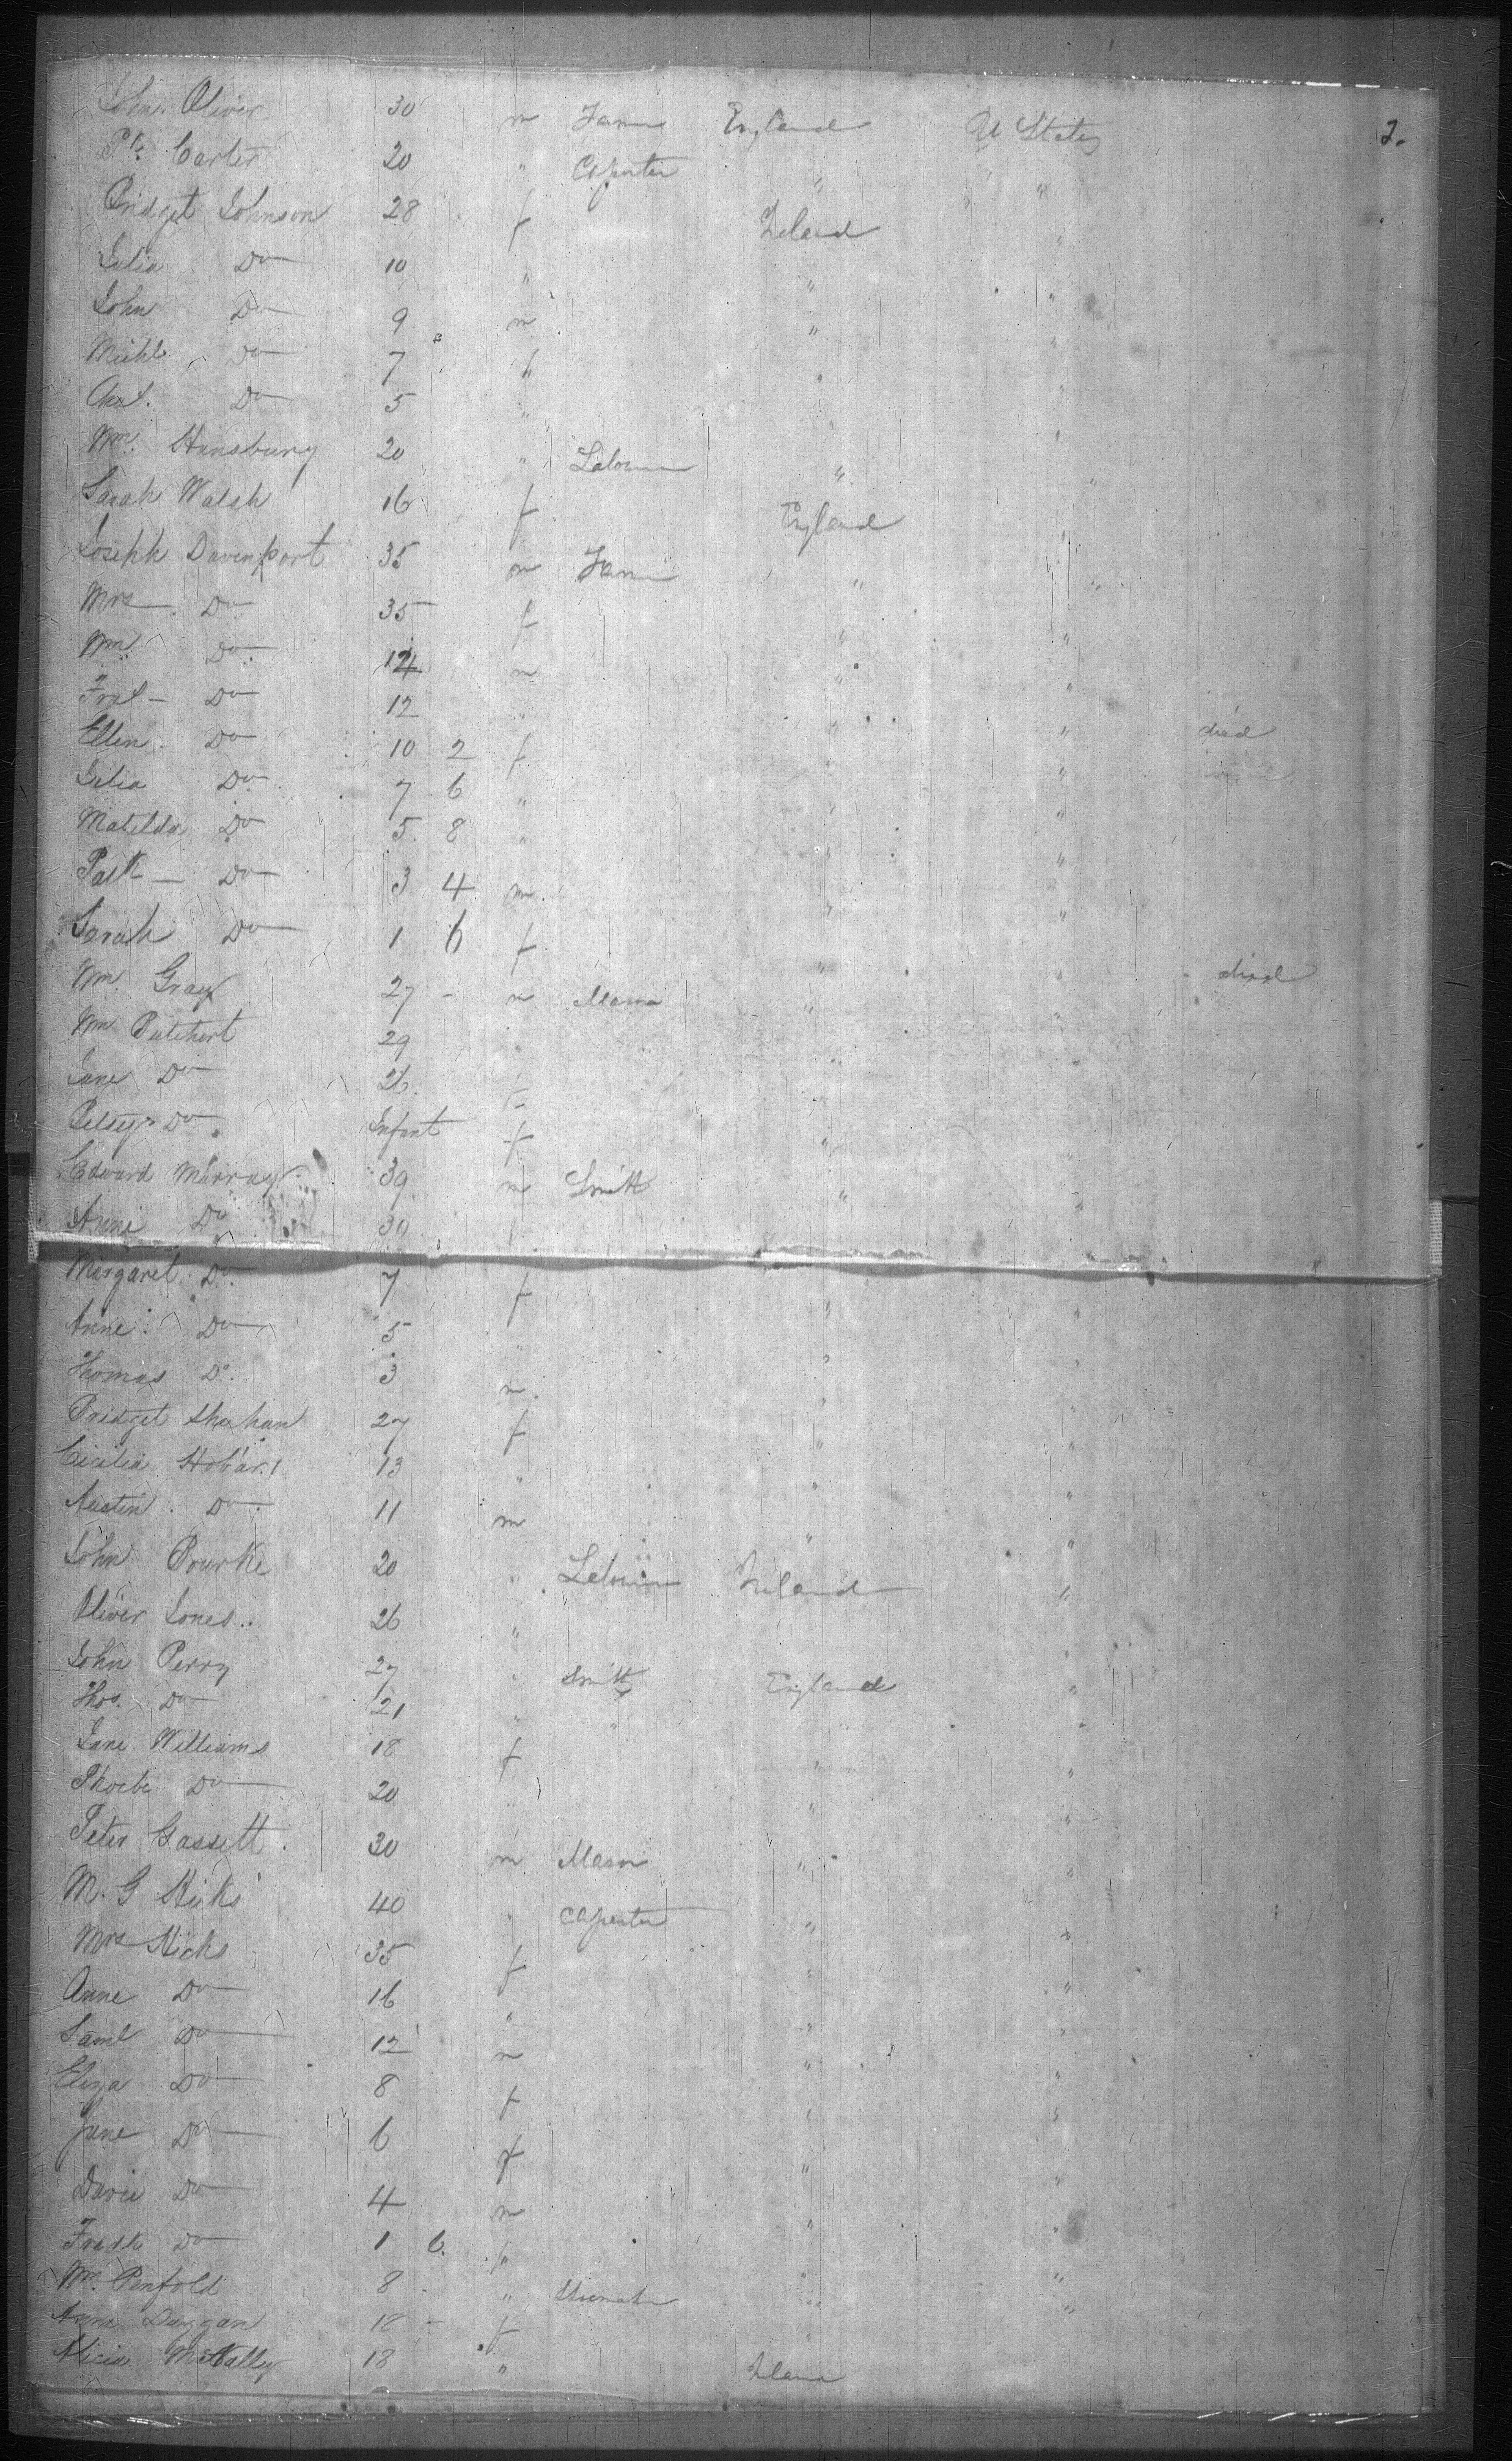 2.
John Oliver 30 m Farmer England U States
Carter 20 " Carpenter " "
Bridget Johnson 28 f Ireland "
Julia Do 10 " " "
John Do 9 m " "
Michl Do 7 " " "
Chas. Do 5 " " "
Wm. Hansbury 20 " Labourer " "
Sarah Walsh 16 f England "
Joseph Davenport 35 m Farmer " "
Mrs Do 35 f " "
Wm. Do 14 m " "
Do 12 " " "
Ellen Do 10 2 f " " died
Julia Do 7 6 " " "
Matilda Do 5 8 " " "
Do 3 4 m " "
Sarah Do 1 6 f " "
Wm. Gray 27 - m Mason " " died
Wm 29 " " "
Jane Do 26 f
Betsy Do Infant f " "
Edward Murray 39 m Smith " "
Anne Do 30
Margaret Do 7 f " "
Anne Do 5 " " "
Thomas Do. 3 m " "
Bridget Shahan 27 f " "
Cicilia Hobart 13 " " "
Austin Do 11 m " "
John Bourke 20 " Labourer Ireland "
Oliver Jones 26 " "
John Perry 27 " Smith England "
Thos. Do 21 " " " "
Jane Williams 18 f " "
Phoebe Do 20 " " "
Peter Gassett 30 m Mason " "
M. G Hicks 40 " Carpenter " "
Mrs Hicks 35 f " "
Anne Do 16 " " "
Saml Do 12 m " "
Eliza Do 8 f " "
Jane Do 6 f " "
David Do 4 m " "
Do 1 6 " "
Wm. Penfold 8 " " "
Anne Duggan 18 - f "
Alicia McNally 18 " Ireland